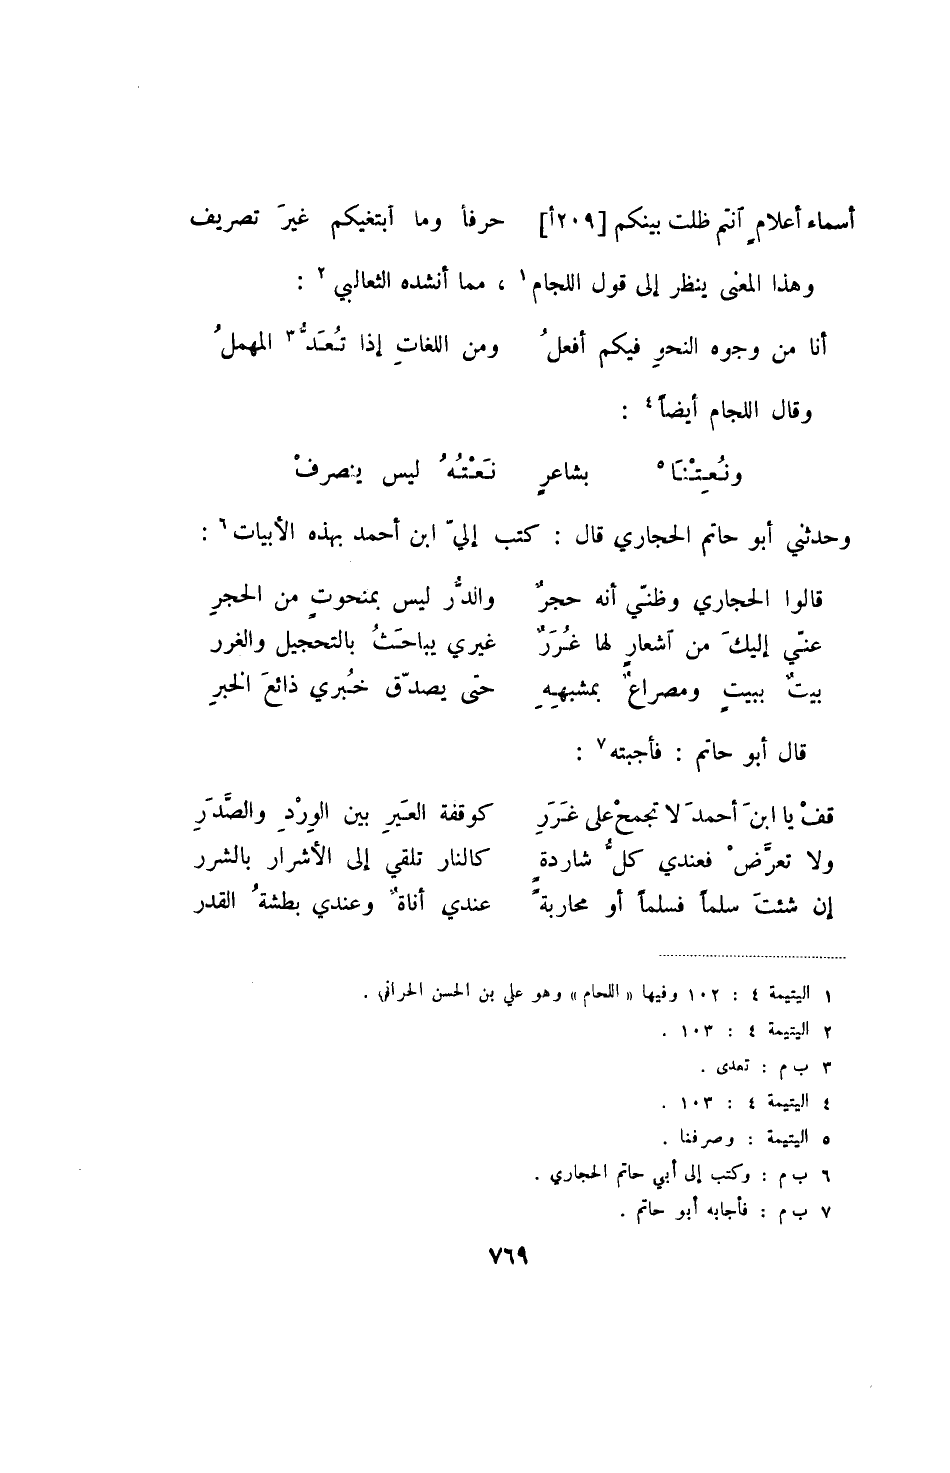 أسماء أعلامٍ آنتم ظلت بينكم [٢٠٩أ] حرفاً وما آبتغيكم غيرَ تصريف
وهذا المعنى ينظر إلى قول اللجام١ ، مما أنشده الثعالبي٢ :
أنا من وجوه النحوِ فيكم أفعلُ ومن اللغاتِ إذا تُعَدُّ٣ المهملُ
وقال اللجام أيضاً٤ :
ونُعِتْنَا٥ بشاعرٍ نَعْتُهُ ليس ينصرفْ
وحدثني أبو حاتم الحجاري قال : كتب إليّ ابن أحمد بهذه الأبيات٦ :
قالوا الحجاري وظنّي أنه حجرٌ والدُّر ليس بمنحوتٍ من الحجرِ
عنّي إليكَ من آشعارٍ لها غُرَرٌ غيري يباحَثُ بالتحجيل والغرر
بيتٌ ببيتٍ ومصراعٌ بمشبهِهِ حتى يصدّق خُبري ذائعَ الخبرِ
قال أبو حاتم : فأجبته٧ :
قفْ يا ابنَ أحمدَ لا تجمحْ على غَرَرِ كوقفة العَيرِ بين الوِرْدِ والصَّدَرِ
ولا تعرَّضْ فعندي كلُّ شاردةٍ كالنار تلقي إلى الأشرار بالشرر
إن شئتَ سلماً فسلماً أو محاربةً عندي أناةٌ وعندي بطشةُ القدر
١ اليتيمة ٤ : ١٠٢ وفيها « اللحام » وهو علي بن الحسن الحراني .
٢ اليتيمة ٤ : ١٠٣ .
٣ ب م : تعدى .
٤ اليتيمة ٤ : ١٠٣ .
٥ اليتيمة : وصرفنا .
٦ ب م : وكتب إلى أبي حاتم الحجاري .
٧ ب م : فأجابه أبو حاتم .
٧٦٩